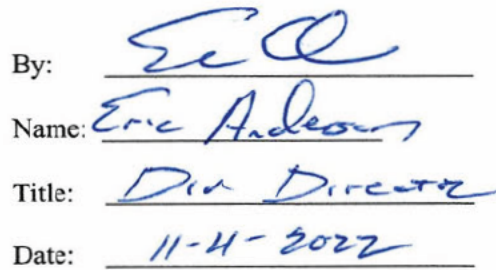 By:
Name: Eric Anderson
Title: Div Director
Date: 11-4-2022